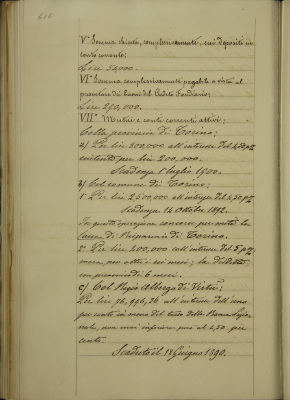 V° Somma dovuta, complessivamente, sui depositi in
conto corrente:
Lire 52,000.
VI° Somma complessivamente pagabile a vista al
portatore di buoni del Credito Fondiario:
Lire 290,000.
VII° Mutui e conti correnti attivi:
Colla provincia di Torino:
a) Per lire 200,000 all'interesse del 4,50 p%
per lire 200,000.
Scadenza 1° luglio 1900.
b) Col comune di Torino:
1° Per lire 2,500,000 all'interesse del 4,50 p%
Scadenza 14 Ottobre 1892.
In questa operazione concorre per metà la
Cassa di Risparmio di Torino.
2° Per lire 400,000 coll'interesse del 5 p%
la disdetta
con preavviso di 6 mesi.
c) Col Regio Albergo di Virtù:
Per lire 76,996,36 all'interesse dell'uno
per cento in meno del tasso della Banca Nazio-
nale, non mai inferiore però al 2,50 per
cento.
Scaduto il 18 Giugno 1890.